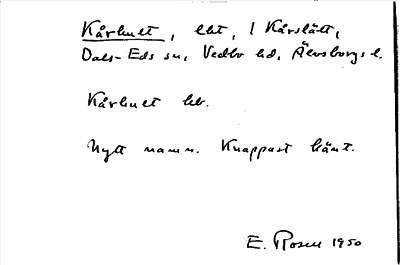 Kårhult, lht, I Kårslätt,
Dals-Eds sn, Vedbo hd, Älvsborgs l.
Kårhult hb.
Nytt namn. Knappast känt.
E. Rosell 1950